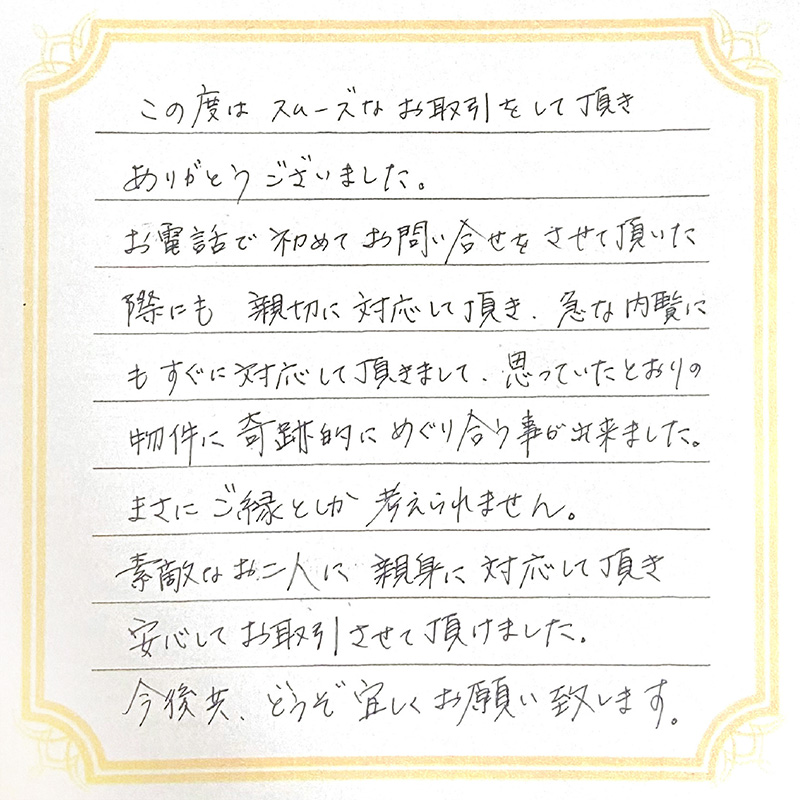 この度は スムーズな お取引をして頂き
ありがとう ございました。
お電話で 初めて お問い合せを させて頂いた
際にも 親切に 対応して頂き、急な内覧に
もすぐに対応して頂きまして、思っていたとおりの
物件に 奇跡的に めぐり合う事が出来ました。
まさに ご縁としか 考えられません。
素敵なお二人に 親身に 対応して頂き
安心して お取引させて頂けました。
今後共、どうぞ 宜しく お願い致します。